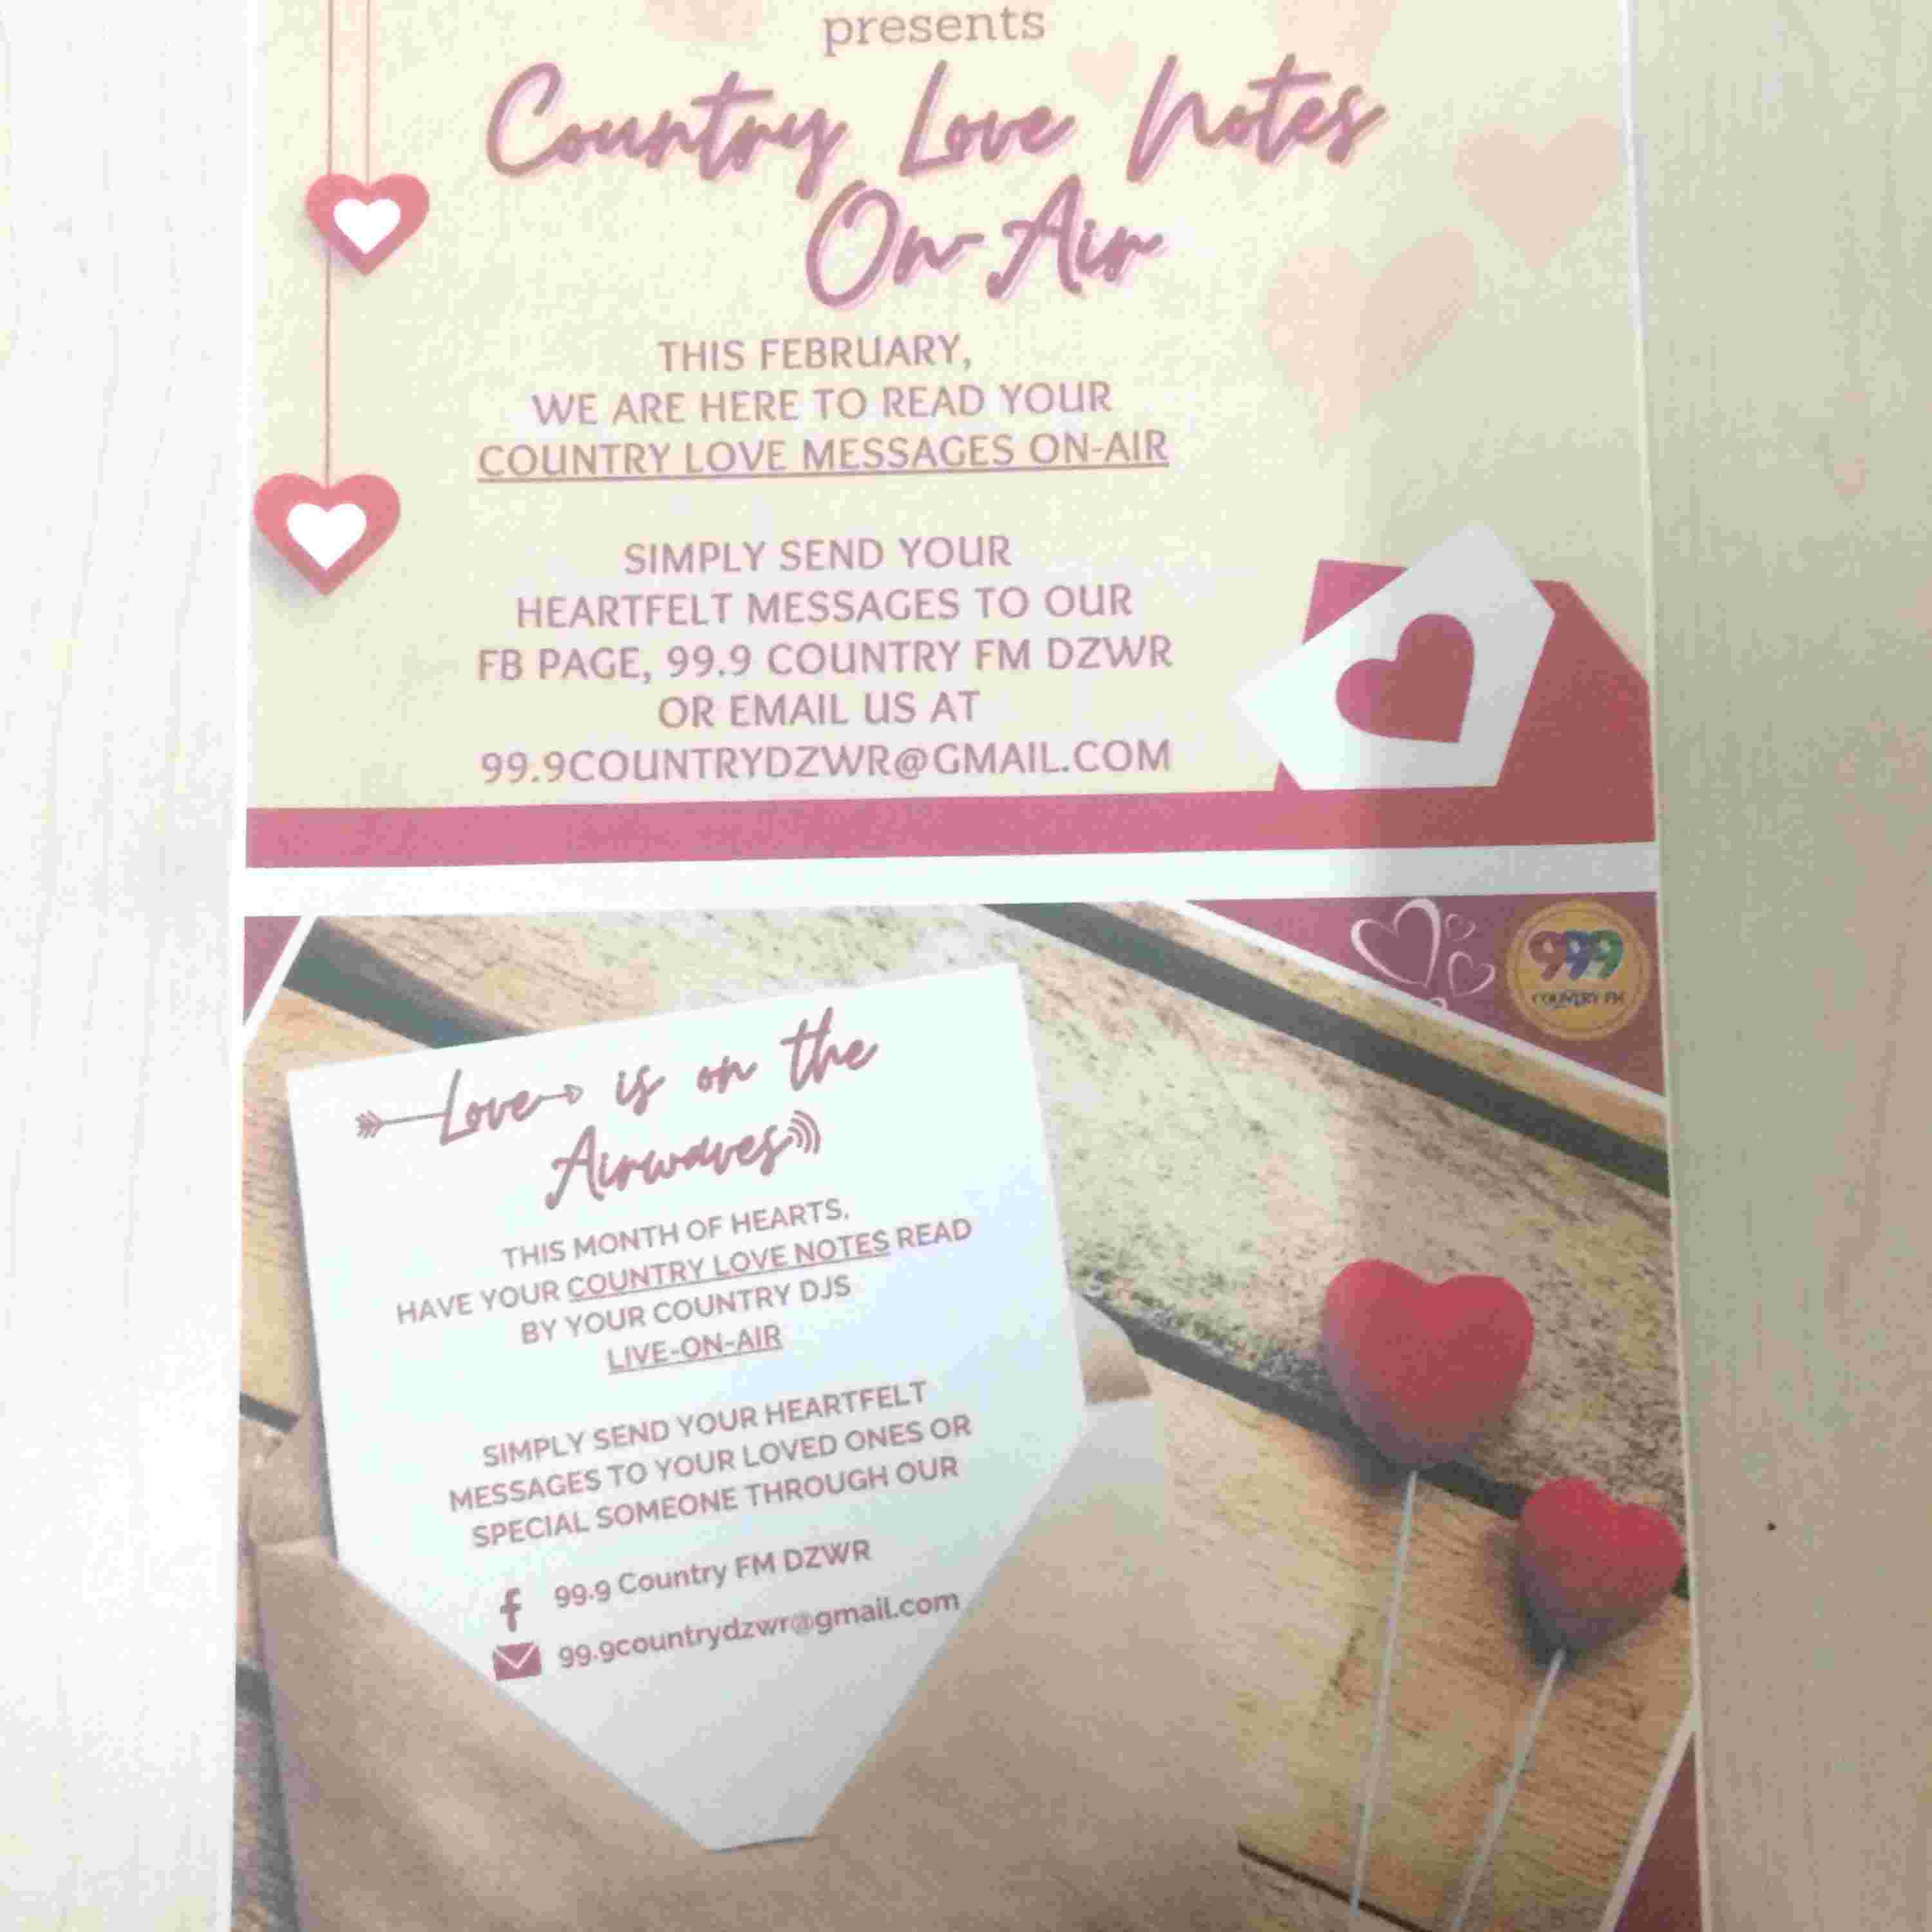 presents
Country Love Notes
On-Air
THIS FEBRUARY,
WE ARE HERE TO READ YOUR
COUNTRY LOVE MESSAGES ON-AIR
SIMPLY SEND YOUR
HEARTFELT MESSAGES TO OUR
FB PAGE, 99.9 COUNTRY FM DZWR
OR EMAIL US AT
99.9COUNTRYDZWR@GMAIL.COM
999
COUNTRY FM
Love is on the
Airwaves
THIS MONTH OF HEARTS,
HAVE YOUR COUNTRY LOVE NOTES READ
BY YOUR COUNTRY DJS
LIVE-ON-AIR
SIMPLY SEND YOUR HEARTFELT
MESSAGES TO YOUR LOVED ONES OR
SPECIAL SOMEONE THROUGH OUR
f 99.9 Country FM DZWR
99.9countrydzwr@gmail.com